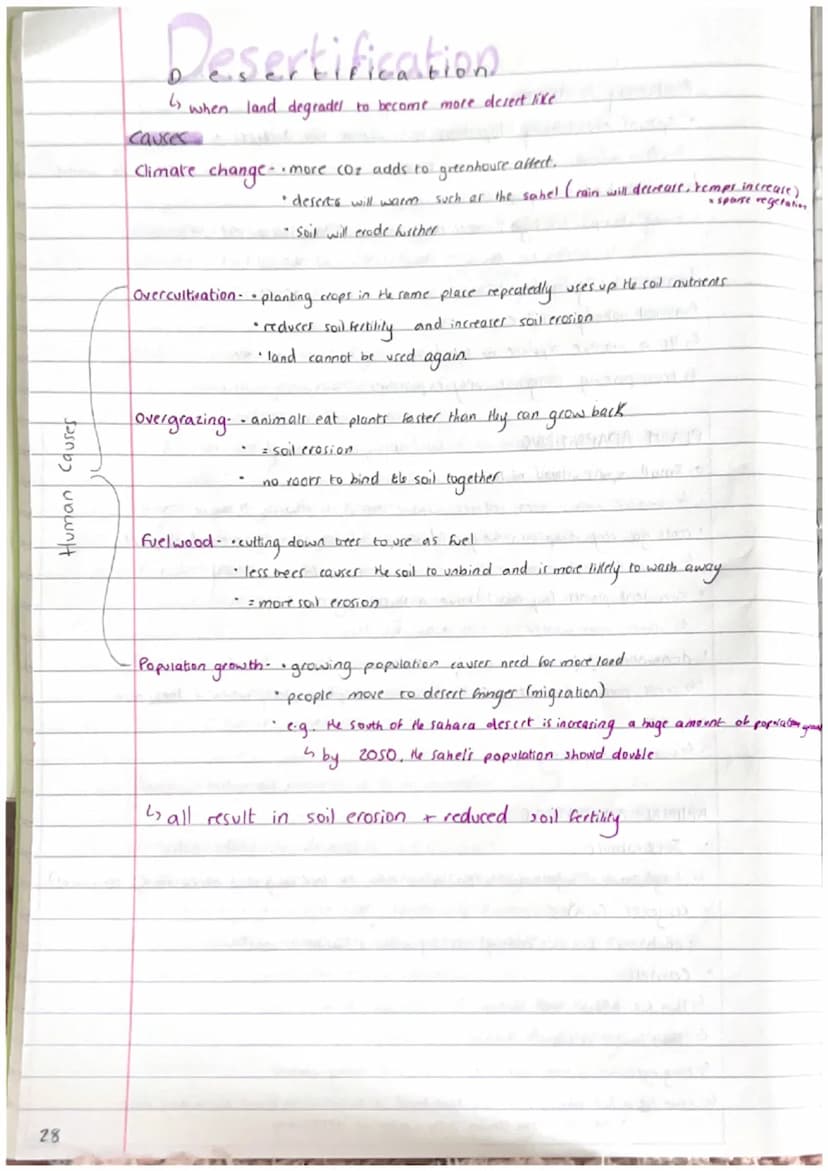 Desertification
Desertification
↳ when land degrades to become more desert like
Causes
Climate change- • more CO2 adds to greenhouse affect.
• deserts will warm such as the sahel (rain will decrease, temps increase)
• sparse vegetation
• Soil will erode further
Overcultivation- • planting crops in the same place repeatedly uses up the soil nutrients
• reduces soil fertility and increases soil erosion
• land cannot be used again.
Overgrazing- • animals eat plants faster than they can grow back
• = soil erosion
• no roots to bind the soil together
Human Causes
Fuelwood- • cutting down trees to use as fuel
• less trees causes the soil to unbind and is more likely to wash away
• = more soil erosion
Population growth- • growing population causes need for more land
• people move to desert fringes (migration)
• e.g. the south of the sahara desert is increasing a huge amount of population growth
↳ by 2050, the sahel's population should double
↳ all result in soil erosion + reduced soil fertility
28